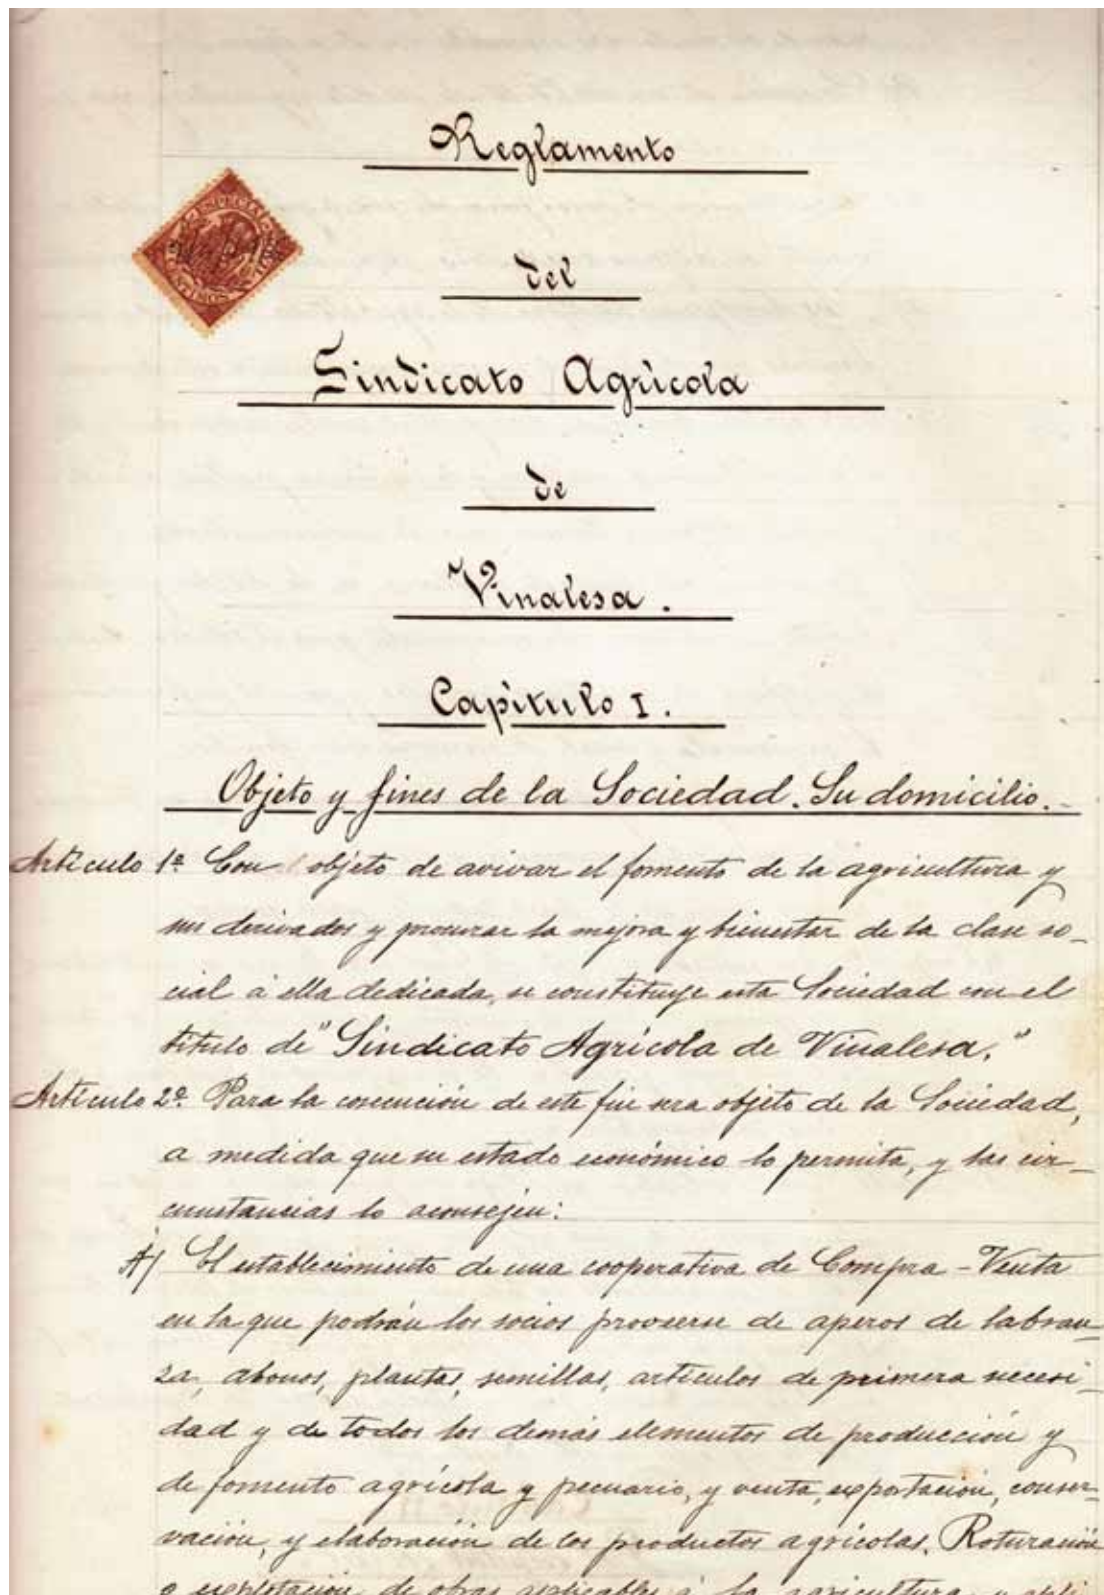 Reglamento
del
ESPECIAL MOVIL
CENTIMOS
Sindicato Agrícola
de
Vinalesa.
Capitulo I.
Objeto y fines de la Sociedad. Su domicilio.
Artículo 1º Con objeto de avivar el fomento de la agricultura y
sus derivados y procurar la mejora y bienestar de la clase so-
cial á ella dedicada, se constituye esta Sociedad con el
titulo de "Sindicato Agrícola de Vinalesa."
Artículo 2º Para la consecución de este fin sera objeto de la Sociedad,
a medida que su estado económico lo permita, y las cir-
cunstancias lo aconsejen:
A) El establecimiento de una cooperativa de Compra-Venta
en la que podrán los socios proveerse de aperos de labran-
za, abonos, plantas, semillas, artículos de primera necesi-
dad y de todos los demás elementos de producción y
de fomento agrícola y pecuario, y venta, exportación, conser-
vación, y elaboración de los productos agrícolas. Roturación
o explotación de obras aplicables á la agricultura y